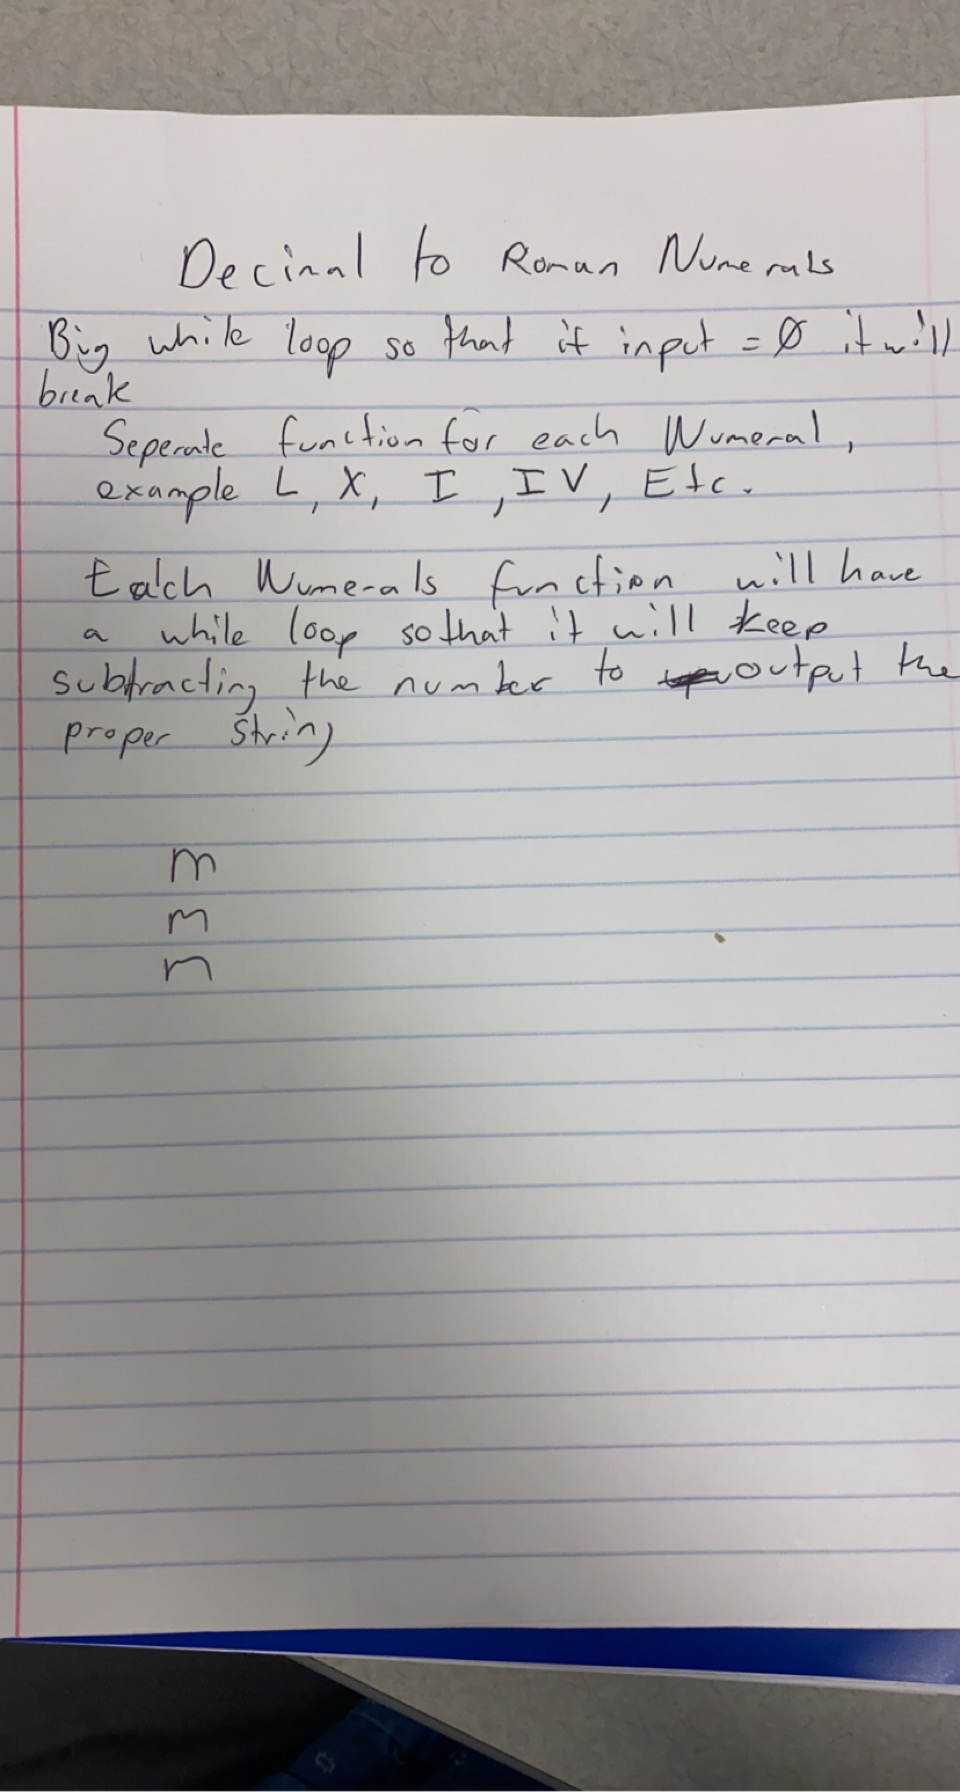 Decimal to Roman Numerals
Big while loop so that if input = Ø it will
break
Seperate function for each Numeral,
example L, X, I, IV, Etc.
Eatch Numerals function will have
a while loop so that it will keep
subtracting the number to output the
proper string
m
m
n